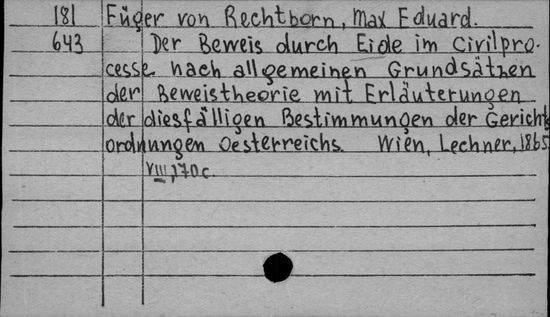 181 Füger von Rechtborn, Max Eduard.
643 Der Beweis durch Eide im Civilpro-
cesse nach allgemeinen Grundsätzen
der Beweistheorie mit Erläuterungen
der diesfälligen Bestimmungen der Gerichts
ordnungen Oesterreichs. Wien, Lechner, 1865.
VIII, 170 c.